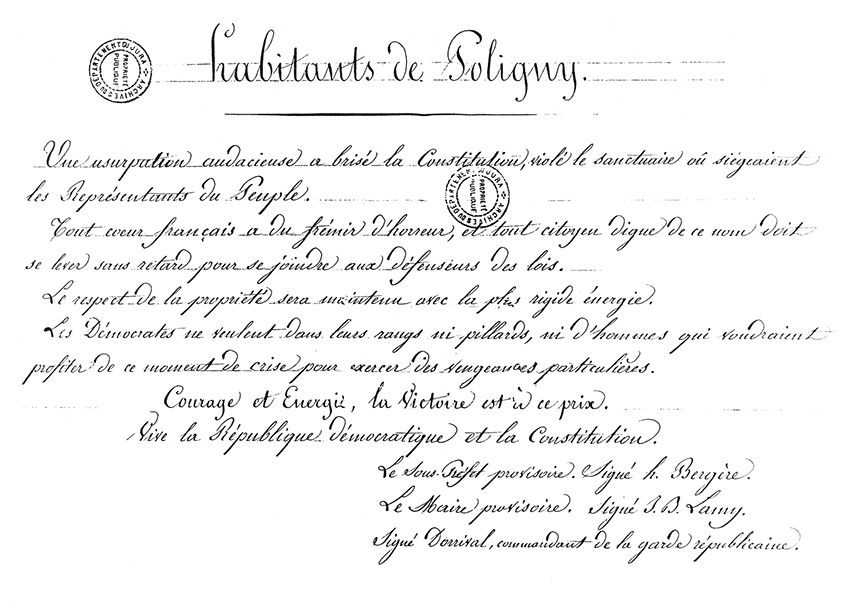 habitants de Poligny.
ARCHIVES DU DÉPARTEMENT DU JURA
PROPRIÉTÉ PUBLIQUE
Une usurpation audacieuse a brisé la Constitution, violé le sanctuaire où siégeaient
les Représentants du Peuple.
ARCHIVES DU DÉPARTEMENT DU JURA
PROPRIÉTÉ PUBLIQUE
Tout coeur français a du frémir d'horreur, et tout citoyen digue de ce nom doit
se lever sans retard pour se joindre aux défenseurs des lois.
Le respect de la propriété sera maintenu avec la plus rigide énergie.
Les Démocrates ne veulent dans leurs rangs ni pillards, ni d'hommes qui voudraient
profiter de ce moment de crise pour exercer des vengeances particulières.
Courage et Energie, la Victoire est à ce prix.
Vive la République démocratique et la Constitution.
Le Sous-Préfet provisoire. Signé h. Bergère.
Le Maire provisoire. Signé J. B. Lamy.
Signé Dorrival, commandant de la garde républicaine.